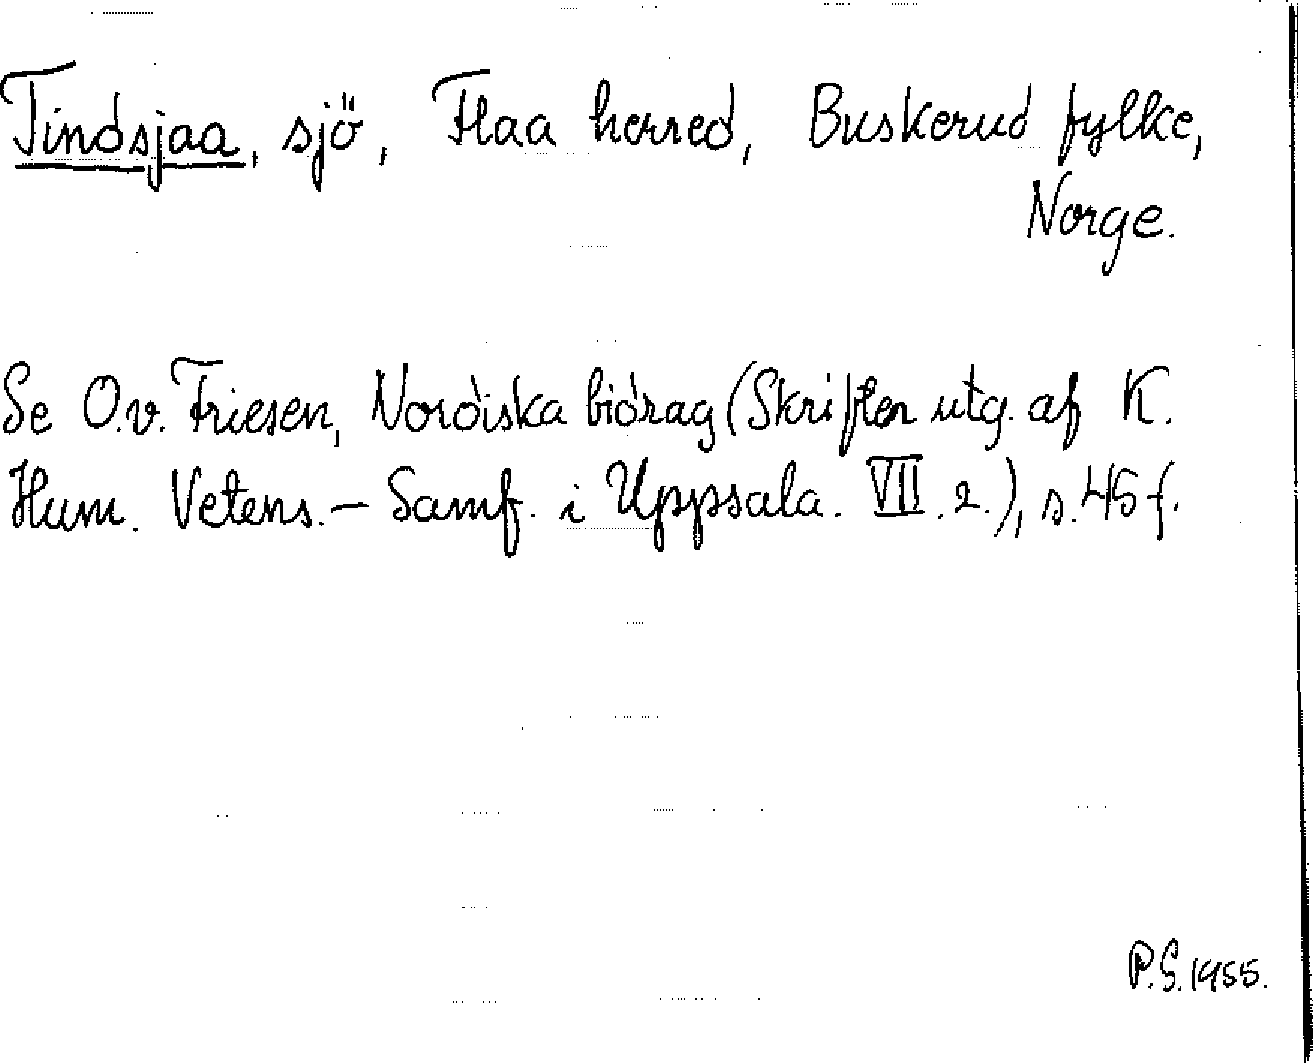 Tindsjaa, sjö, Flaa herred, Buskerud fylke,
Norge.
Se O.v. Friesen, Nordiska bidrag (Skrifter utg. af K.
Hum. Vetens.-Samf. i Uppsala. VII.2.), s.45 f.
P.S. 1955.